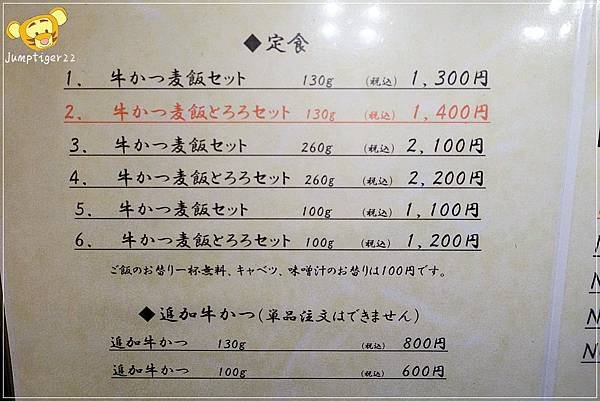 Jumptiger22
◆定食
1. 牛かつ麦飯セット 130g (税込) 1,300円
2. 牛かつ麦飯とろろセット 130g (税込) 1,400円
3. 牛かつ麦飯セット 260g (税込) 2,100円
4. 牛かつ麦飯とろろセット 260g (税込) 2,200円
5. 牛かつ麦飯セット 100g (税込) 1,100円
6. 牛かつ麦飯とろろセット 100g (税込) 1,200円
ご飯のお替り一杯無料、キャベツ、味噌汁のお替りは100円です。
◆追加牛かつ(単品注文はできません)
追加牛かつ 130g (税込) 800円
追加牛かつ 100g (税込) 600円